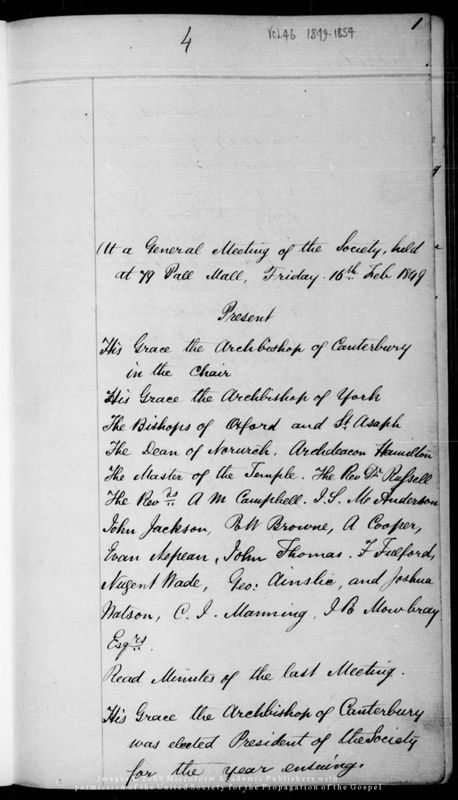 4
Vol 46 1849-1854
1
At a General Meeting of the Society, held
at 79 Pall Mall, Friday 16th Feb 1849
Present
His Grace the Archbishop of Canterbury
in the Chair
His Grace the Archbishop of York
The Bishops of Oxford and St. Asaph
The Dean of Norwich. Archdeacon Hamilton
The Master of the Temple. The Rev Dr Russell
The Revds A M Campbell. J. S. M. Anderson
John Jackson, R W Browne, A Cooper,
Evan Nepean, John Thomas. F Fulford,
Nugent Wade, Geo: Ainslie, and Joshua
Watson, C. J. Manning, J R Mowbray
Esqrs.
Read Minutes of the last Meeting.
His Grace the Archbishop of Canterbury
was elected President of the Society
for the year ensuing.
Image © 2009 Microform Academic Publishers with
permission of the United Society for the Propagation of the Gospel